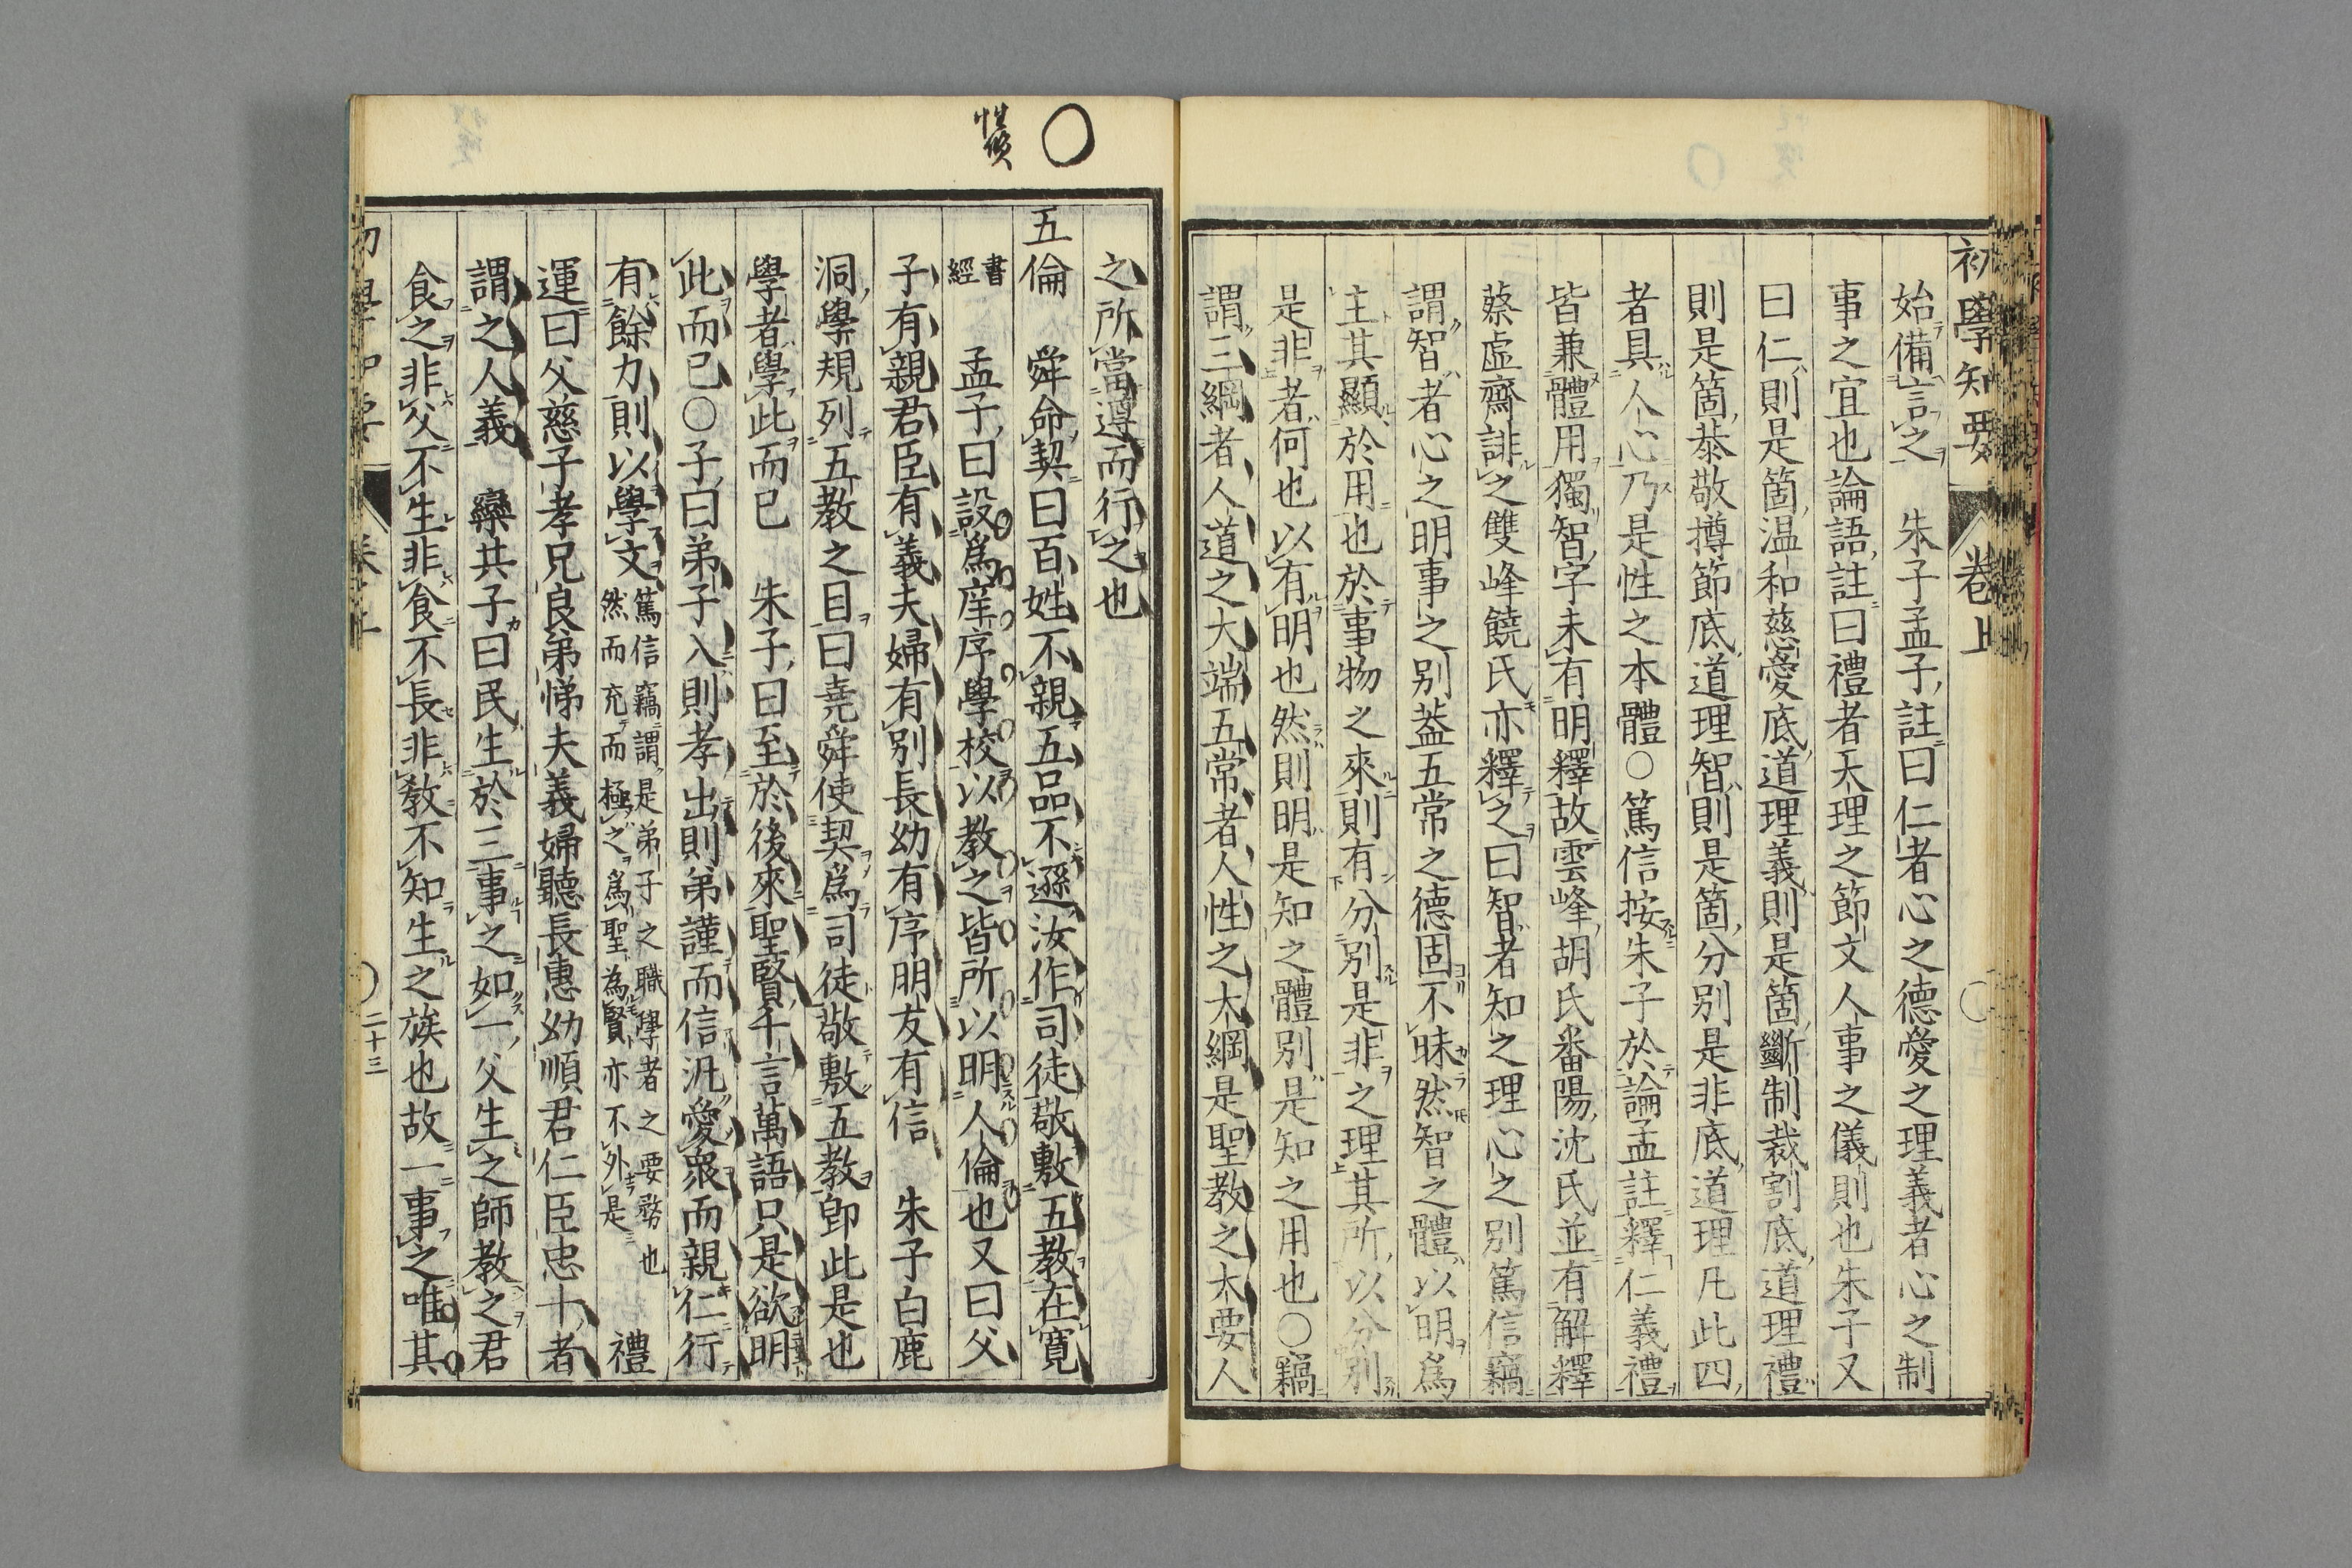 初學知要
卷上
始備言之　朱子孟子註曰仁者心之德愛之理義者心之制
事之宜也論語註曰禮者天理之節文人事之儀則也朱子又
曰仁則是箇温和慈愛底道理義則是箇斷制裁割底道理禮
則是箇恭敬撙節底道理智則是箇分別是非底道理凡此四
者具人心乃是性之本體○篤信按朱子於論孟註釋仁義禮
皆兼體用獨智字未有明釋故雲峰胡氏番陽沈氏並有解釋
蔡虛齋誹之雙峰饒氏亦釋之曰智者知之理心之別篤信竊
謂智者心之明事之別葢五常之德固不昧然智之體以明爲
主其顯於用也於事物之來則有分別是非之理其所以分別
是非者何也以有明也然則明是知之體別是知之用也○竊
謂三綱者人道之大端五常者人性之大綱是聖教之大要人
之所當遵而行之也
五倫　舜命契曰百姓不親五品不遜汝作司徒敬敷五教在寬
書經　孟子曰設爲庠序學校以教之皆所以明人倫也又曰父
子有親君臣有義夫婦有別長幼有序朋友有信　朱子白鹿
洞學規列五教之目曰堯舜使契爲司徒敬敷五教卽此是也
學者學此而已　朱子曰至於後來聖賢千言萬語只是欲明
此而已○子曰弟子入則孝出則弟謹而信汎愛衆而親仁行
有餘力則以學文篤信竊謂是弟子之職學者之要務也然而充而極之爲聖為賢亦不外是　禮
運曰父慈子孝兄良弟悌夫義婦聽長惠幼順君仁臣忠十者
謂之人義　欒共子曰民生於三事之如一父生之師教之君
食之非父不生非食不長非教不知生之族也故一事之唯其
二十三